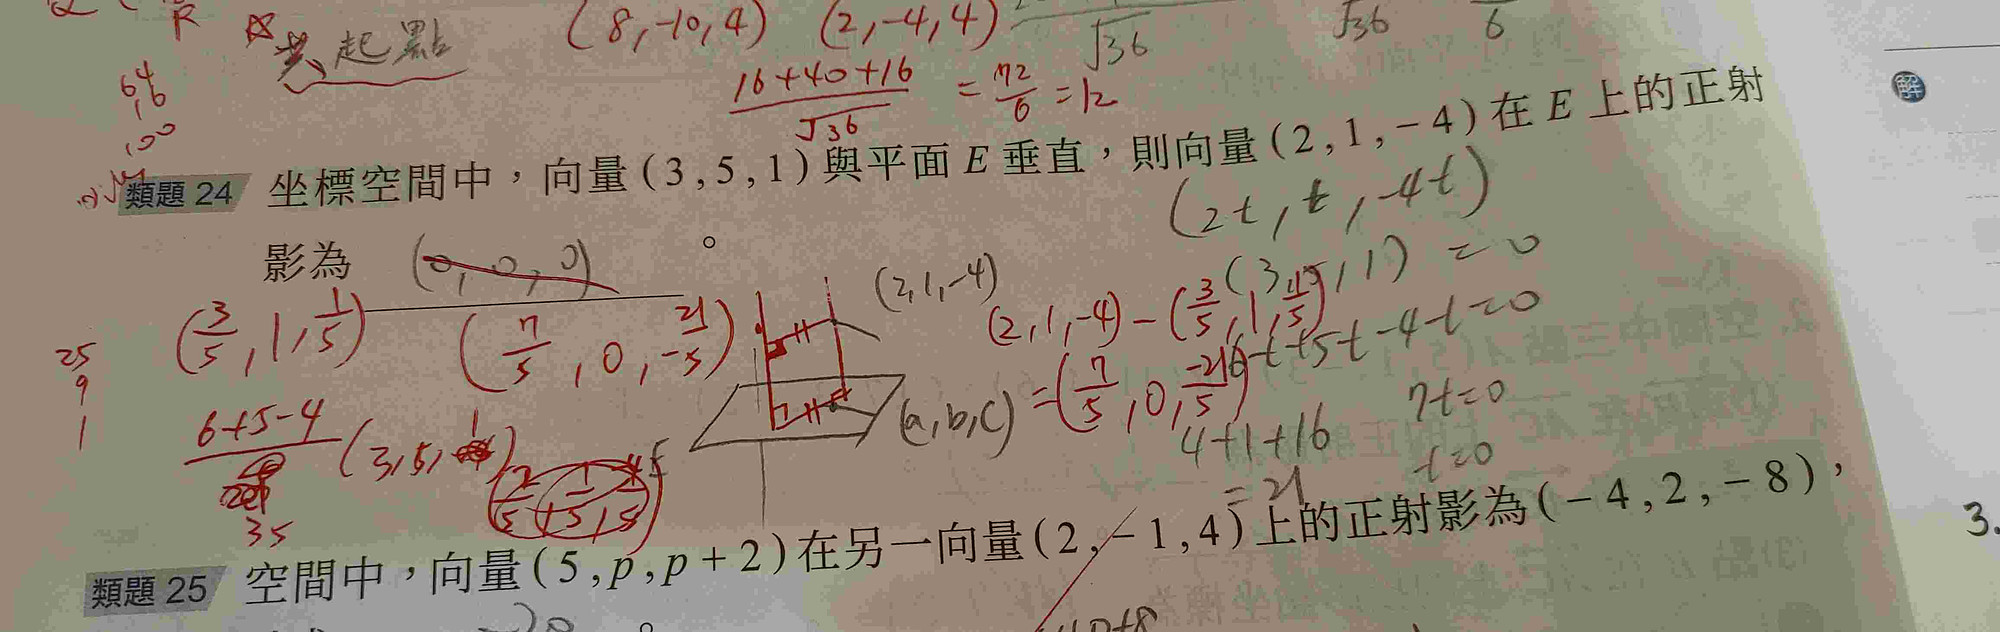 共起點
(8,-10,4) (2,-4,4)
√36
√36
6
64
16+40+16
√36
= 72/6 = 12
100
解
類題 24 坐標空間中，向量(3,5,1)與平面 E 垂直，則向量(2,1,-4)在 E 上的正射
(2t, t, -4t)
影為 (0,0,0) 。
(3,5,1) = 0
(2,1,-4)
(3/5, 1, 1/5)
(7/5, 0, -21/5)
(2,1,-4) - (3/5, 1, 1/5)
6t+5t-4t=0
= (7/5, 0, -21/5)
(a,b,c)
7t=0
t=0
25
9
1
6+5-4
35
(3,5,1)
E
4+1+16
= 21
類題 25 空間中，向量(5,p,p+2)在另一向量(2,-1,4)上的正射影為(-4,2,-8)，
3.